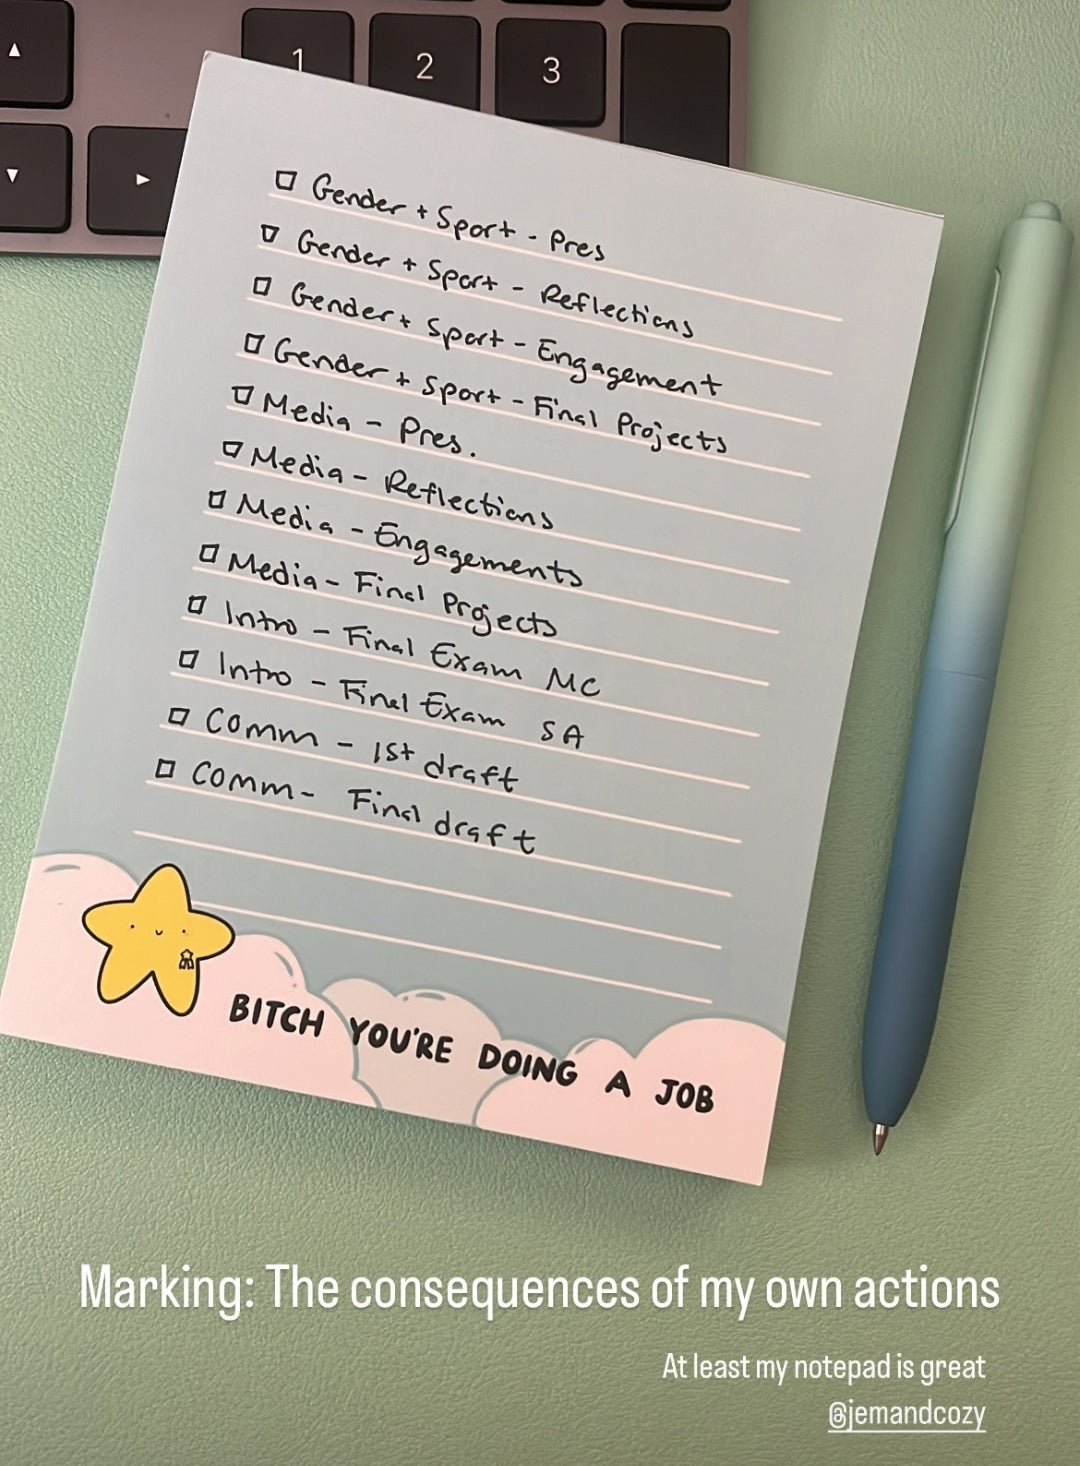 1 2 3
☐ Gender + Sport - Pres
☐ Gender + Sport - Reflections
☐ Gender + Sport - Engagement
☐ Gender + Sport - Final Projects
☐ Media - Pres.
☐ Media - Reflections
☐ Media - Engagements
☐ Media - Final Projects
☐ Intro - Final Exam MC
☐ Intro - Final Exam SA
☐ Comm - 1st draft
☐ Comm - Final draft
BITCH YOU'RE DOING A JOB
Marking: The consequences of my own actions
At least my notepad is great
@jemandcozy